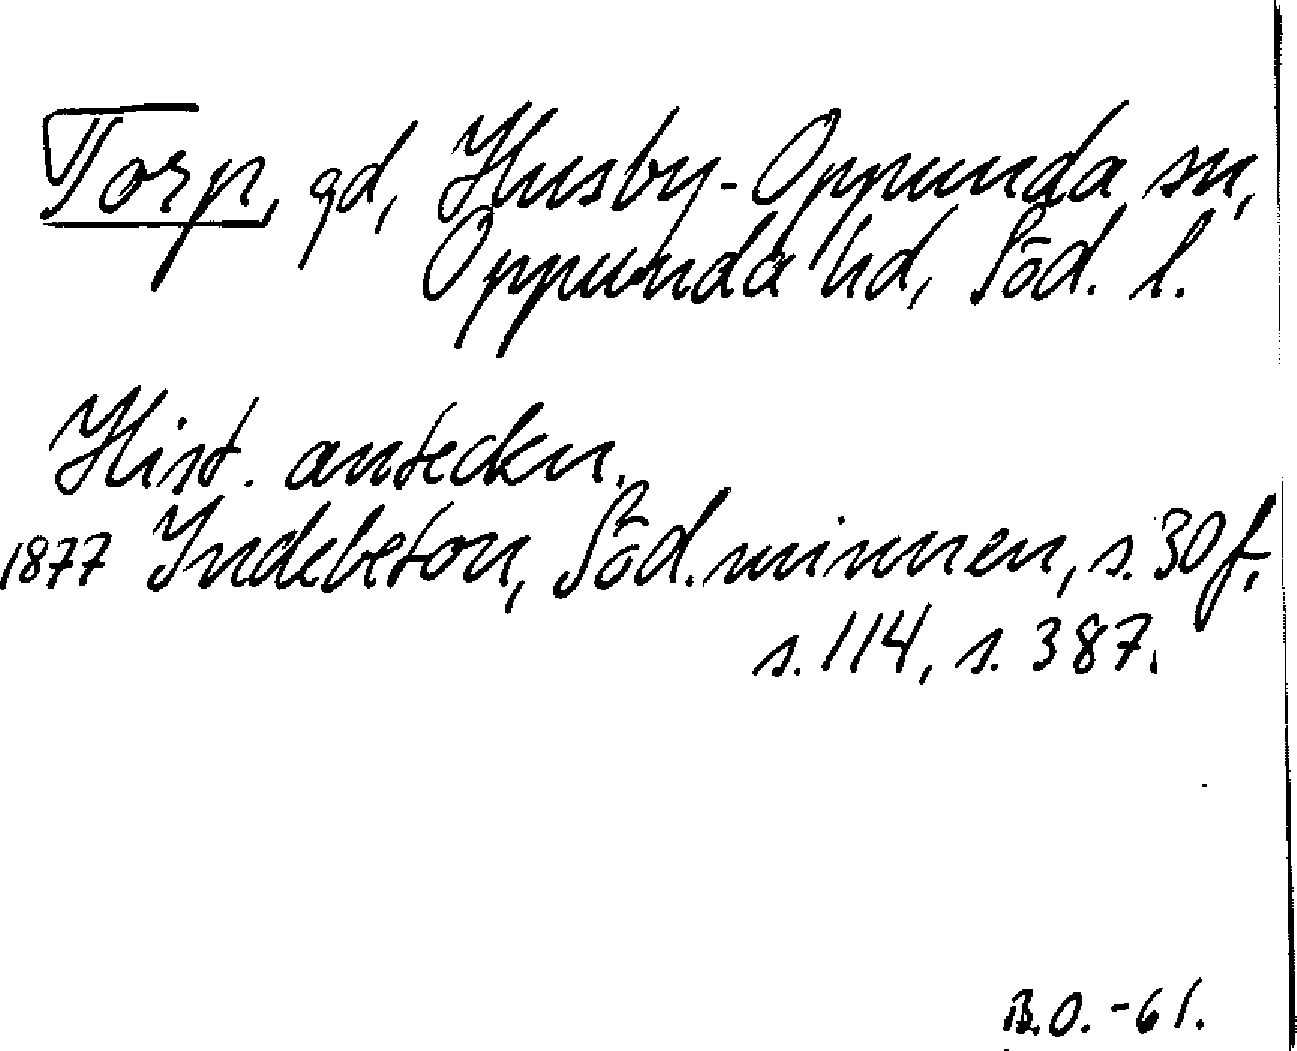 Torp, gd, Husby-Oppunda sn,
Oppunda hd, Söd. l.
Hist. anteckn.
1877 Indebetou, Söd. minnen, s. 30 f,
s. 114, s. 387.
B.O. -61.